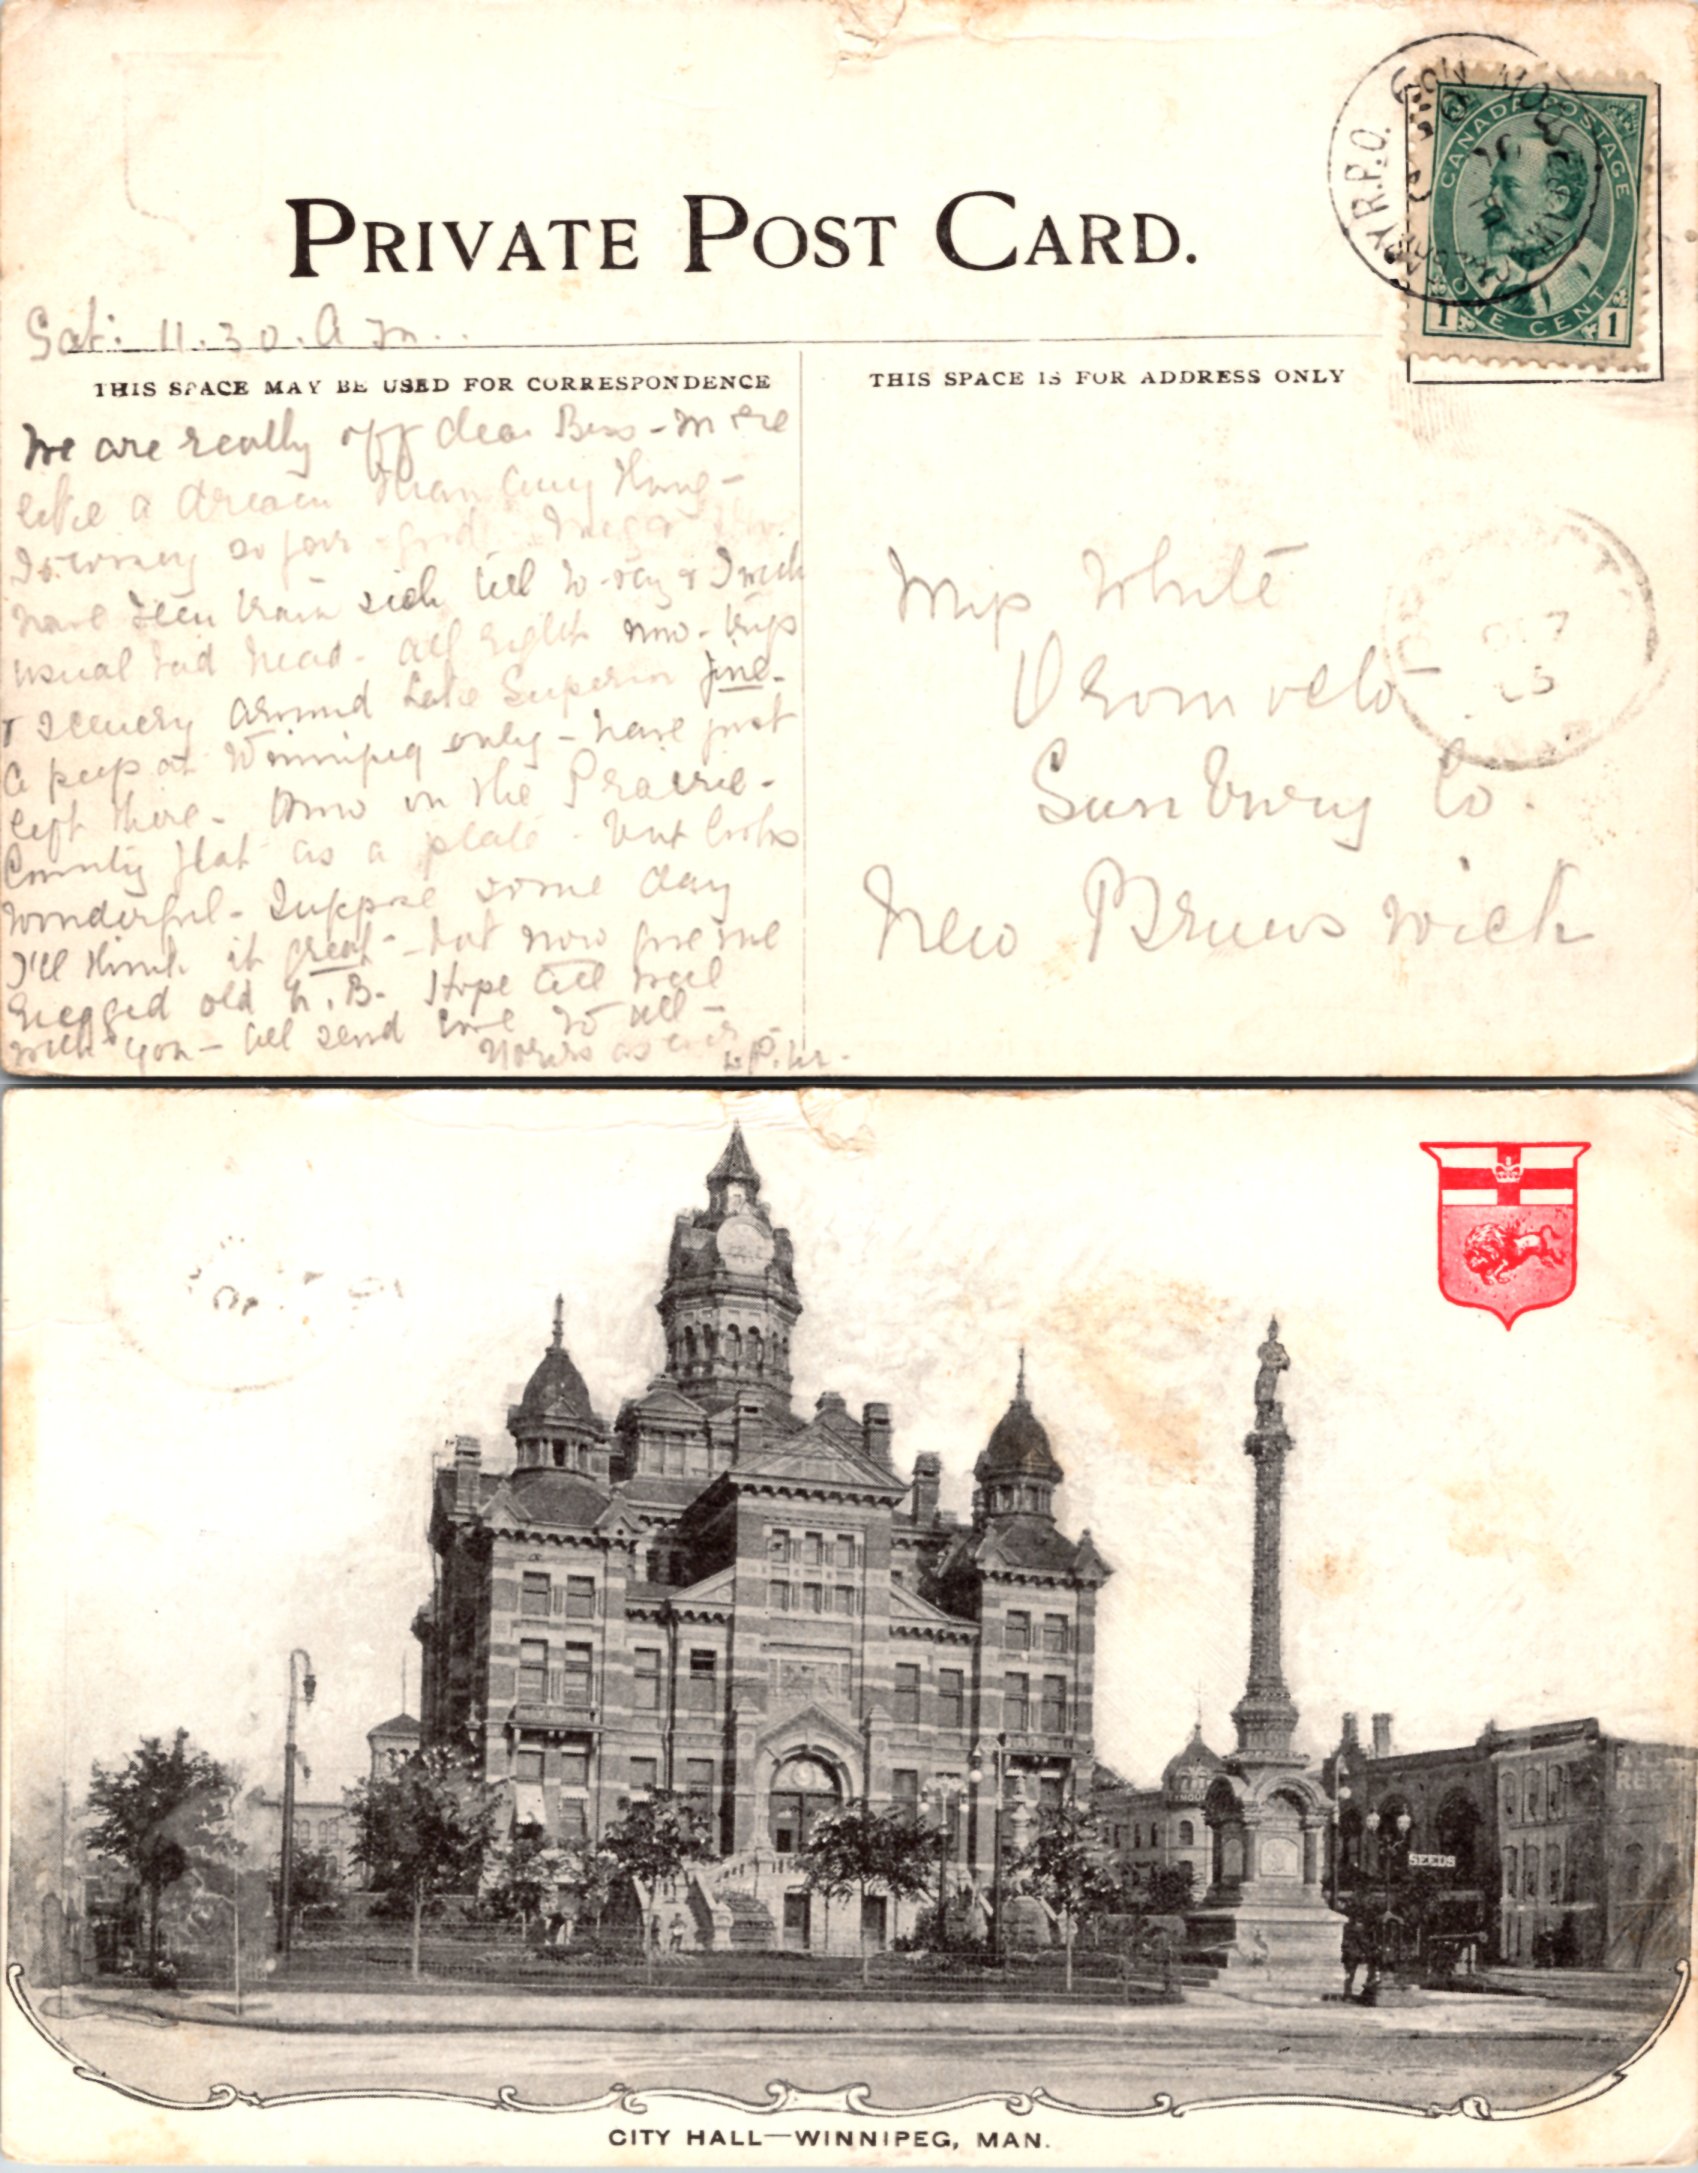 PRIVATE POST CARD.
CANADA POSTAGE
ONE CENT
1 1
R.P.O.
Sat: 11.30. A m..
THIS SPACE MAY BE USED FOR CORRESPONDENCE
THIS SPACE IS FOR ADDRESS ONLY
We are really off dear Bess - more
like a dream than any thing -
so far good
have been train sick till to-day & I with
usual bad head. all right now - trip
& scenery around Lake Superior fine.
a peep at Winnipeg only - have just
left there. Now on the Prairie.
Country flat as a plate - but looks
wonderful - Suppose some day
I'll think it great - but now give me
rugged old N. B. Hope all well
with you - all send love to all -
Yours as ever
Miss White
Sunbury Co.
New Brunswick
CITY HALL—WINNIPEG, MAN.
SEEDS